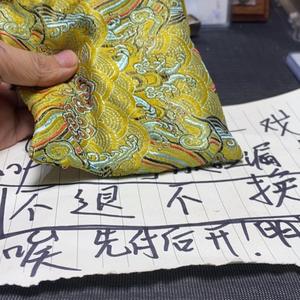 戏
漏
不退不换
唉 先付后开!